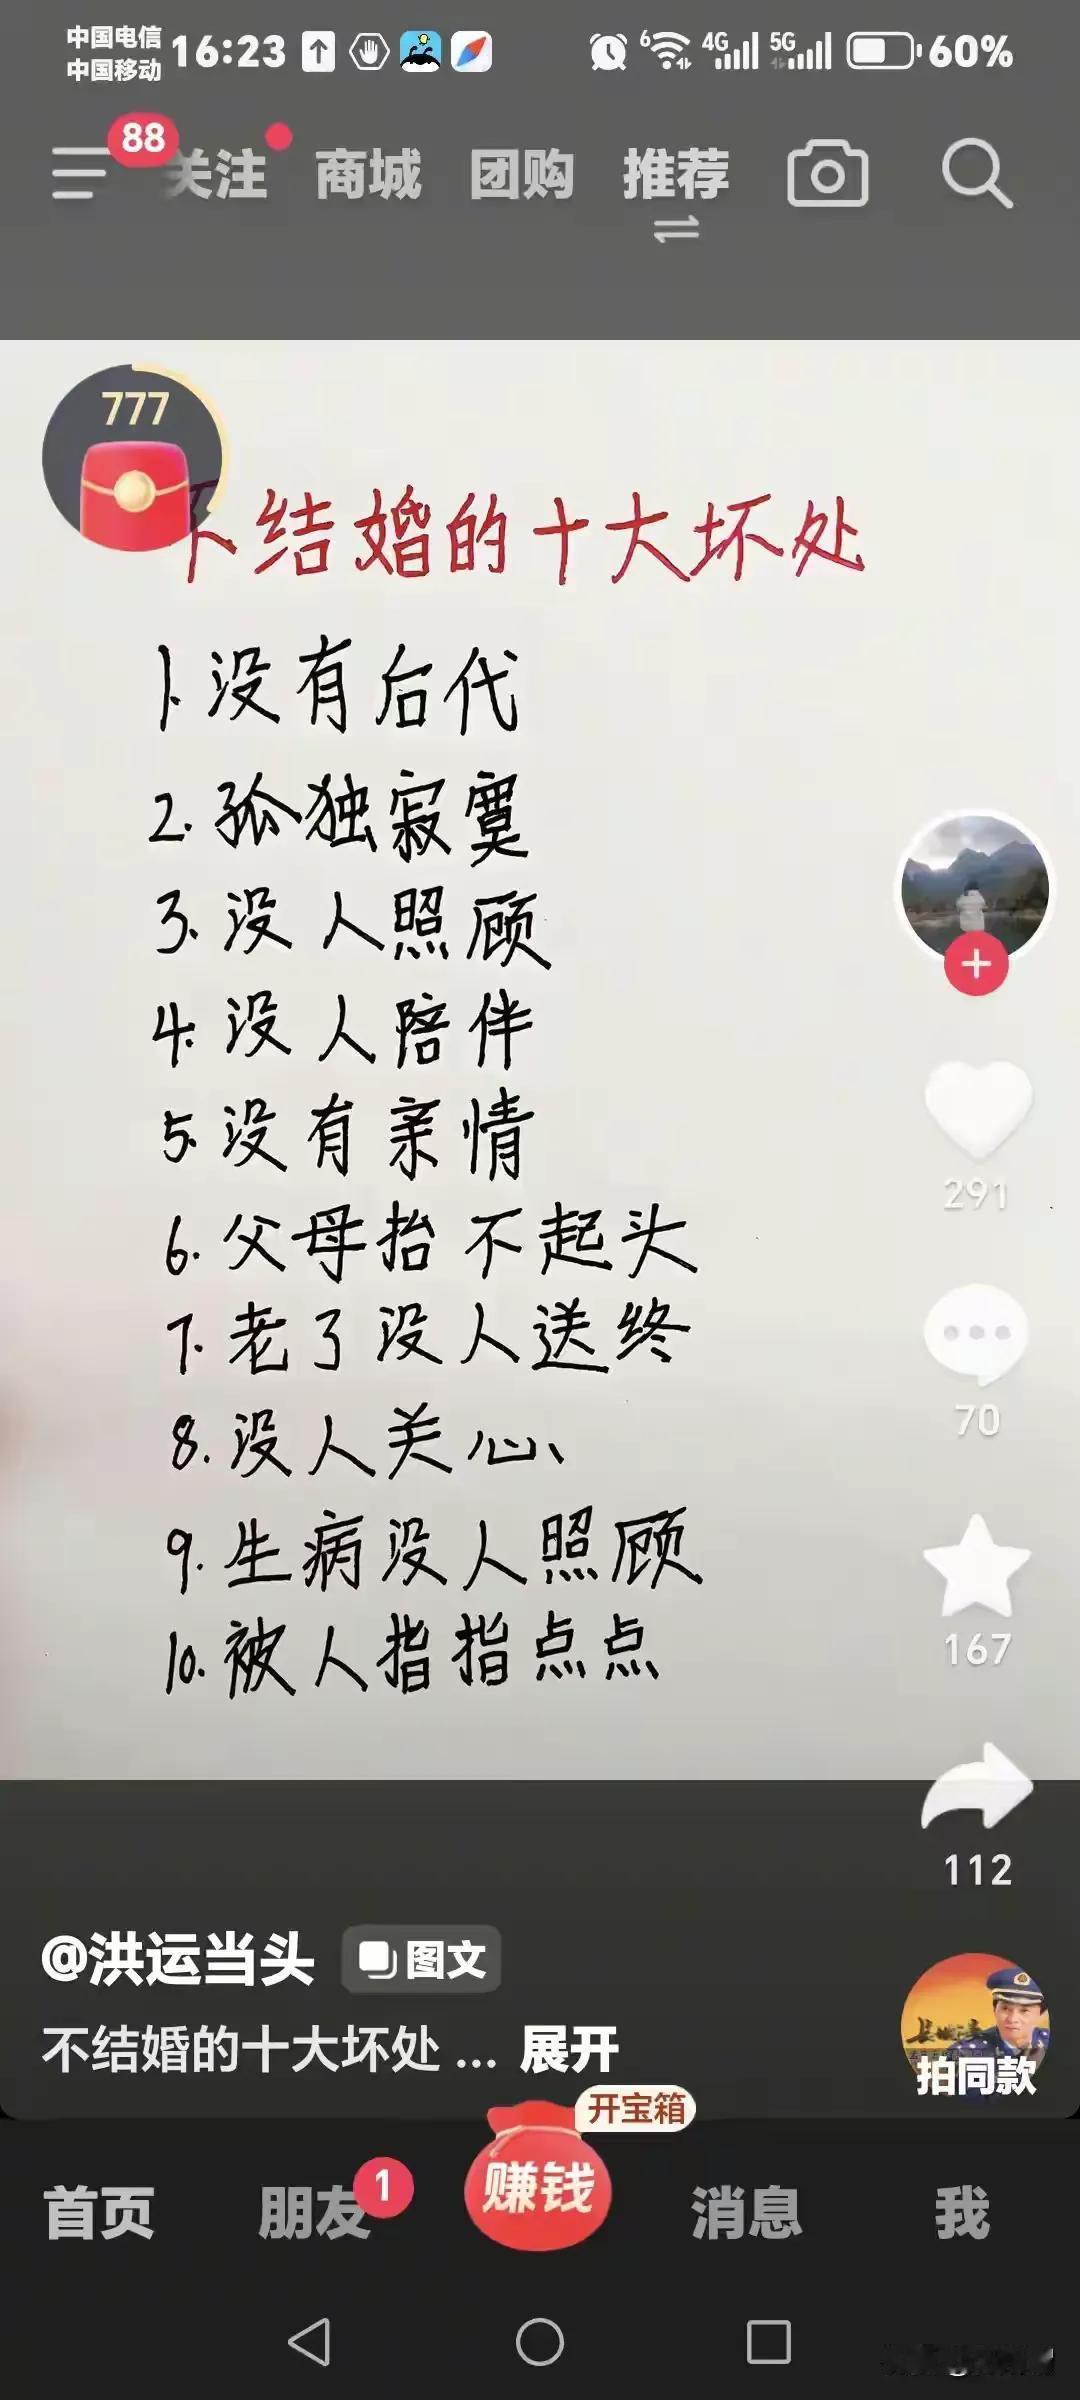 中国电信
中国移动
16:23
6
4G
5G
60%
88
关注 商城 团购 推荐
777
不结婚的十大坏处
1.没有后代
2.孤独寂寞
3.没人照顾
4.没人陪伴
5.没有亲情
6.父母抬不起头
7.老了没人送终
8.没人关心
9.生病没人照顾
10.被人指指点点
291
70
167
112
@洪运当头 图文
不结婚的十大坏处 ... 展开
拍同款
开宝箱
首页 朋友 1 赚钱 消息 我